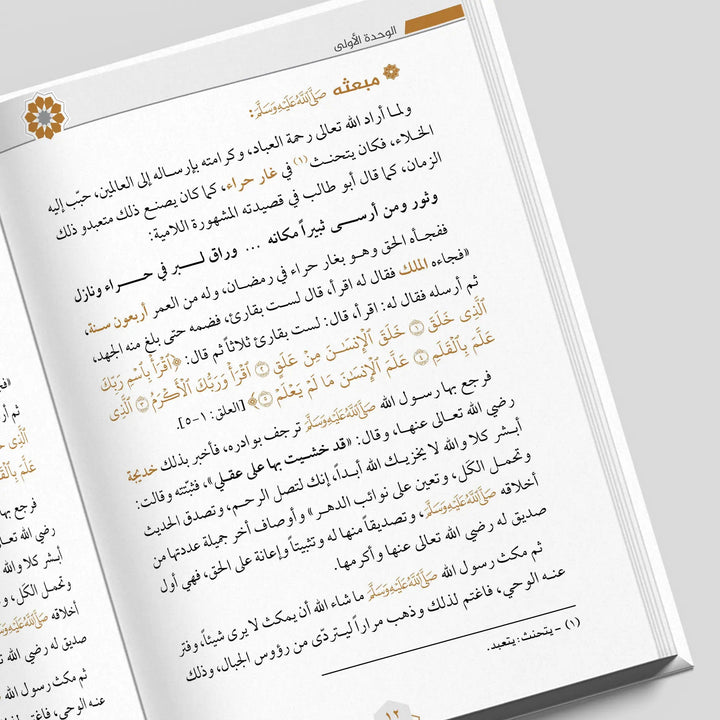 الوحدة الأولى
مبعثه ﷺ:
ولما أراد الله تعالى رحمة العباد، وكرامته بإرساله إلى العالمين، حبّب إليه
الخلاء، فكان يتحنث (١) في غار حراء، كما كان يصنع ذلك متعبدو ذلك
الزمان، كما قال أبو طالب في قصيدته المشهورة اللامية:
وثور ومن أرسى ثبيراً مكانه ... وراق لبر في حراء ونازل
ففجأه الحق وهو بغار حراء في رمضان، وله من العمر أربعون سنة،
«فجاءه الملك فقال له اقرأ، قال لست بقارئ، فضمه حتى بلغ منه الجهد،
ثم أرسله فقال له: اقرأ، قال: لست بقارئ ثلاثاً ثم قال: ﴿ٱقۡرَأۡ بِٱسۡمِ رَبِّكَ
ٱلَّذِى خَلَقَ ١ خَلَقَ ٱلۡإِنسَـٰنَ مِنۡ عَلَقٍ ٢ ٱقۡرَأۡ وَرَبُّكَ ٱلۡأَكۡرَمُ ٣ ٱلَّذِى
عَلَّمَ بِٱلۡقَلَمِ ٤ عَلَّمَ ٱلۡإِنسَـٰنَ مَا لَمۡ يَعۡلَمۡ ٥﴾ [العلق: ١-٥].
فرجع بها رسول الله ﷺ ترجف بوادره، فأخبر بذلك خديجة
رضي الله تعالى عنها، وقال: «قد خشيت بها على عقلي»، فثبّتته وقالت:
أبشر كلا والله لا يخزيك الله أبداً، إنك لتصل الرحم، وتصدق الحديث
وتحمل الكَل، وتعين على نوائب الدهر» وأوصاف أخر جميلة عددتها من
أخلاقه ﷺ، وتصديقاً منها له وتثبيتاً وإعانة على الحق، فهي أول
صديق له رضي الله تعالى عنها وأكرمها.
ثم مكث رسول الله ﷺ ما شاء الله أن يمكث لا يرى شيئاً، وفتر
عنه الوحي، فاغتم لذلك وذهب مراراً ليتردّى من رؤوس الجبال، وذلك
(١) - يتحنث: يتعبد.
١٢